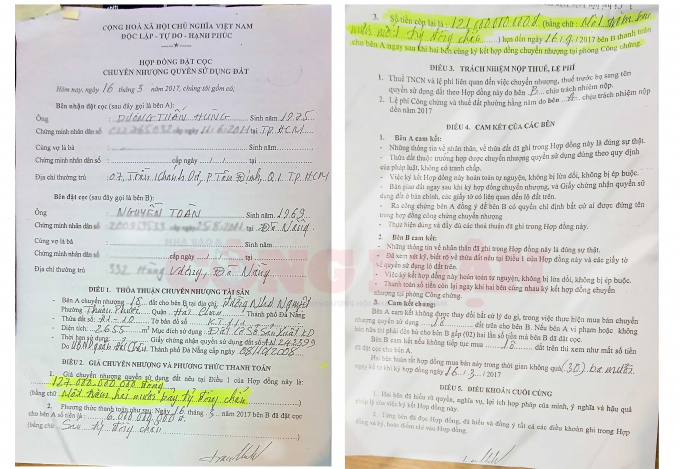 CỘNG HOÀ XÃ HỘI CHỦ NGHĨA VIỆT NAM
ĐỘC LẬP - TỰ DO - HẠNH PHÚC
HỢP ĐỒNG ĐẶT CỌC
CHUYỂN NHƯỢNG QUYỀN SỬ DỤNG ĐẤT
Hôm nay, ngày 16 tháng 3 năm 2017, chúng tôi gồm có:
Bên nhận đặt cọc (sau đây gọi là bên A):
Ông DƯƠNG TUẤN HÙNG Sinh năm 1925
Chứng minh nhân dân số cấp ngày tại TP. HCM
Cùng vợ là bà Sinh năm
Chứng minh nhân dân số cấp ngày / / tại
Địa chỉ thường trú 07, Trần Khánh Dư, P. Tân Định, Q1. TP. HCM
Bên đặt cọc (sau đây gọi là bên B):
Ông NGUYỄN TOÀN Sinh năm 1969
Chứng minh nhân dân số cấp ngày tại Đà Nẵng
Cùng vợ là bà Sinh năm
Chứng minh nhân dân số cấp ngày tại
Địa chỉ thường trú 332 Hùng Vương, Đà Nẵng
ĐIỀU 1. THỎA THUẬN CHUYỂN NHƯỢNG TÀI SẢN
Bên A chuyển nhượng lô đất cho bên B tại địa chỉ
Thuận Phước Quận Hải Châu Thành phố Đà Nẵng
Thửa đất số: A1-10 Tờ bản đồ số
Diện tích: 2655 m² Mục đích sử dụng: Đất cơ sở sản xuất KD
Thời hạn sử dụng: Giấy chứng nhận quyền sử dụng đất số
Do UBND Thành phố Đà Nẵng cấp ngày 08/10/2008
ĐIỀU 2. GIÁ CHUYỂN NHƯỢNG VÀ PHƯƠNG THỨC THANH TOÁN
1. Giá chuyển nhượng quyền sử dụng đất nêu tại Điều 1 của Hợp đồng này là:
127.000.000.000 đồng
(bằng chữ: Một trăm hai mươi bảy tỷ đồng chẵn)
2. Phương thức thanh toán như sau: Ngày 16 tháng 3 năm 2017 bên B đã đặt cọc
cho bên A số tiền là: 6.000.000.000 đ
(bằng chữ: Sáu tỷ đồng chẵn)
3. Số tiền còn lại là: 121.000.000.000 (bằng chữ: Một trăm hai
mươi mốt tỷ đồng chẵn) hạn đến ngày 16/9/2017 bên B thanh toán
cho bên A ngay sau khi hai bên cùng ký kết hợp đồng chuyển nhượng tại phòng Công chứng.
ĐIỀU 3. TRÁCH NHIỆM NỘP THUẾ, LỆ PHÍ
1. Thuế TNCN và lệ phí liên quan đến việc chuyển nhượng, thuế trước bạ sang tên
quyền sử dụng đất theo Hợp đồng này do bên B chịu trách nhiệm nộp.
2. Lệ phí Công chứng và thuế đất phường hằng năm do bên A chịu trách nhiệm nộp
đến năm 2017
ĐIỀU 4. CAM KẾT CỦA CÁC BÊN
1. Bên A cam kết:
- Những thông tin về nhân thân, về thửa đất đã ghi trong Hợp đồng này là đúng sự thật.
- Thửa đất thuộc trường hợp được chuyển nhượng quyền sử dụng đúng theo quy định
của pháp luật, không có tranh chấp.
- Việc ký kết Hợp đồng này hoàn toàn tự nguyện, không bị lừa dối, không bị ép buộc.
- Bàn giao đất ngay sau khi ký hợp đồng chuyển nhượng, và Giấy chứng nhận quyền sử
dụng đất ở bản chính, các giấy tờ có liên quan đến lô đất trên.
- Ra công chứng bên A đồng ý để bên B có quyền chỉ định bất cứ ai được đứng tên
trong hợp đồng công chứng chuyển nhượng
- Thực hiện đúng và đầy đủ các thoả thuận đã ghi trong Hợp đồng này.
2. Bên B cam kết:
- Những thông tin về nhân thân đã ghi trong Hợp đồng này là đúng sự thật.
- Đã xem xét kỹ, biết rõ về thửa đất nêu tại Điều 1 của Hợp đồng này và các giấy tờ
về quyền sử dụng lô đất trên.
- Việc ký kết Hợp đồng này hoàn toàn tự nguyện, không bị lừa dối, không bị ép buộc.
- Thanh toán số tiền còn lại ngay khi hai bên cùng nhau ký kết hợp đồng chuyển
nhượng tại phòng Công chứng.
3. Cam kết chung:
Bên A cam kết không được thay đổi bất cứ lý do gì, trong việc thực hiện mua bán chuyển
nhượng quyền sử dụng lô đất trên cho bên B. Nếu bên A vi phạm hoặc không
bán nữa thì phải đền bù cho bên B gấp (02) hai lần số tiền mà bên B đã đặt cọc.
Bên B cam kết nếu không tiếp tục mua lô đất trên thì xem như mất số tiền
đã đặt cọc cho bên A.
Hai bên hoàn tất hợp đồng mua bán này trong thời gian không quá (30) ba mươi
ngày kể từ khi ký hợp đồng ngày 16/3/2017
ĐIỀU 5. ĐIỀU KHOẢN CUỐI CÙNG
1. Hai bên đã hiểu rõ quyền, nghĩa vụ, lợi ích hợp pháp của mình, ý nghĩa và hậu quả
pháp lý của việc ký kết Hợp đồng này.
2. Từng bên đã đọc Hợp đồng, đã hiểu và đồng ý tất cả các điều khoản ghi trong Hợp
đồng và ký, hoàn điểm chỉ vào Hợp đồng.